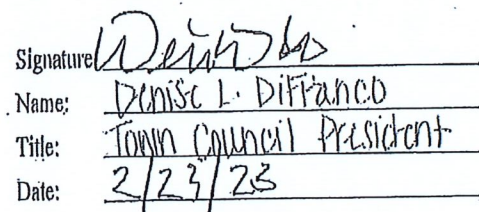 Signature
Name: Denise L. DiFranco
Title: Town Council President
Date: 2/23/23